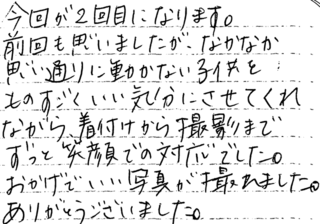 今回が2回目になります。
前回も思いましたが、なかなか
思い通りに動かない子供を
ものすごくいい気分にさせてくれ
ながら、着付けから撮影まで
ずっと笑顔での対応でした。
おかげでいい写真が撮れました。
ありがとうございました。